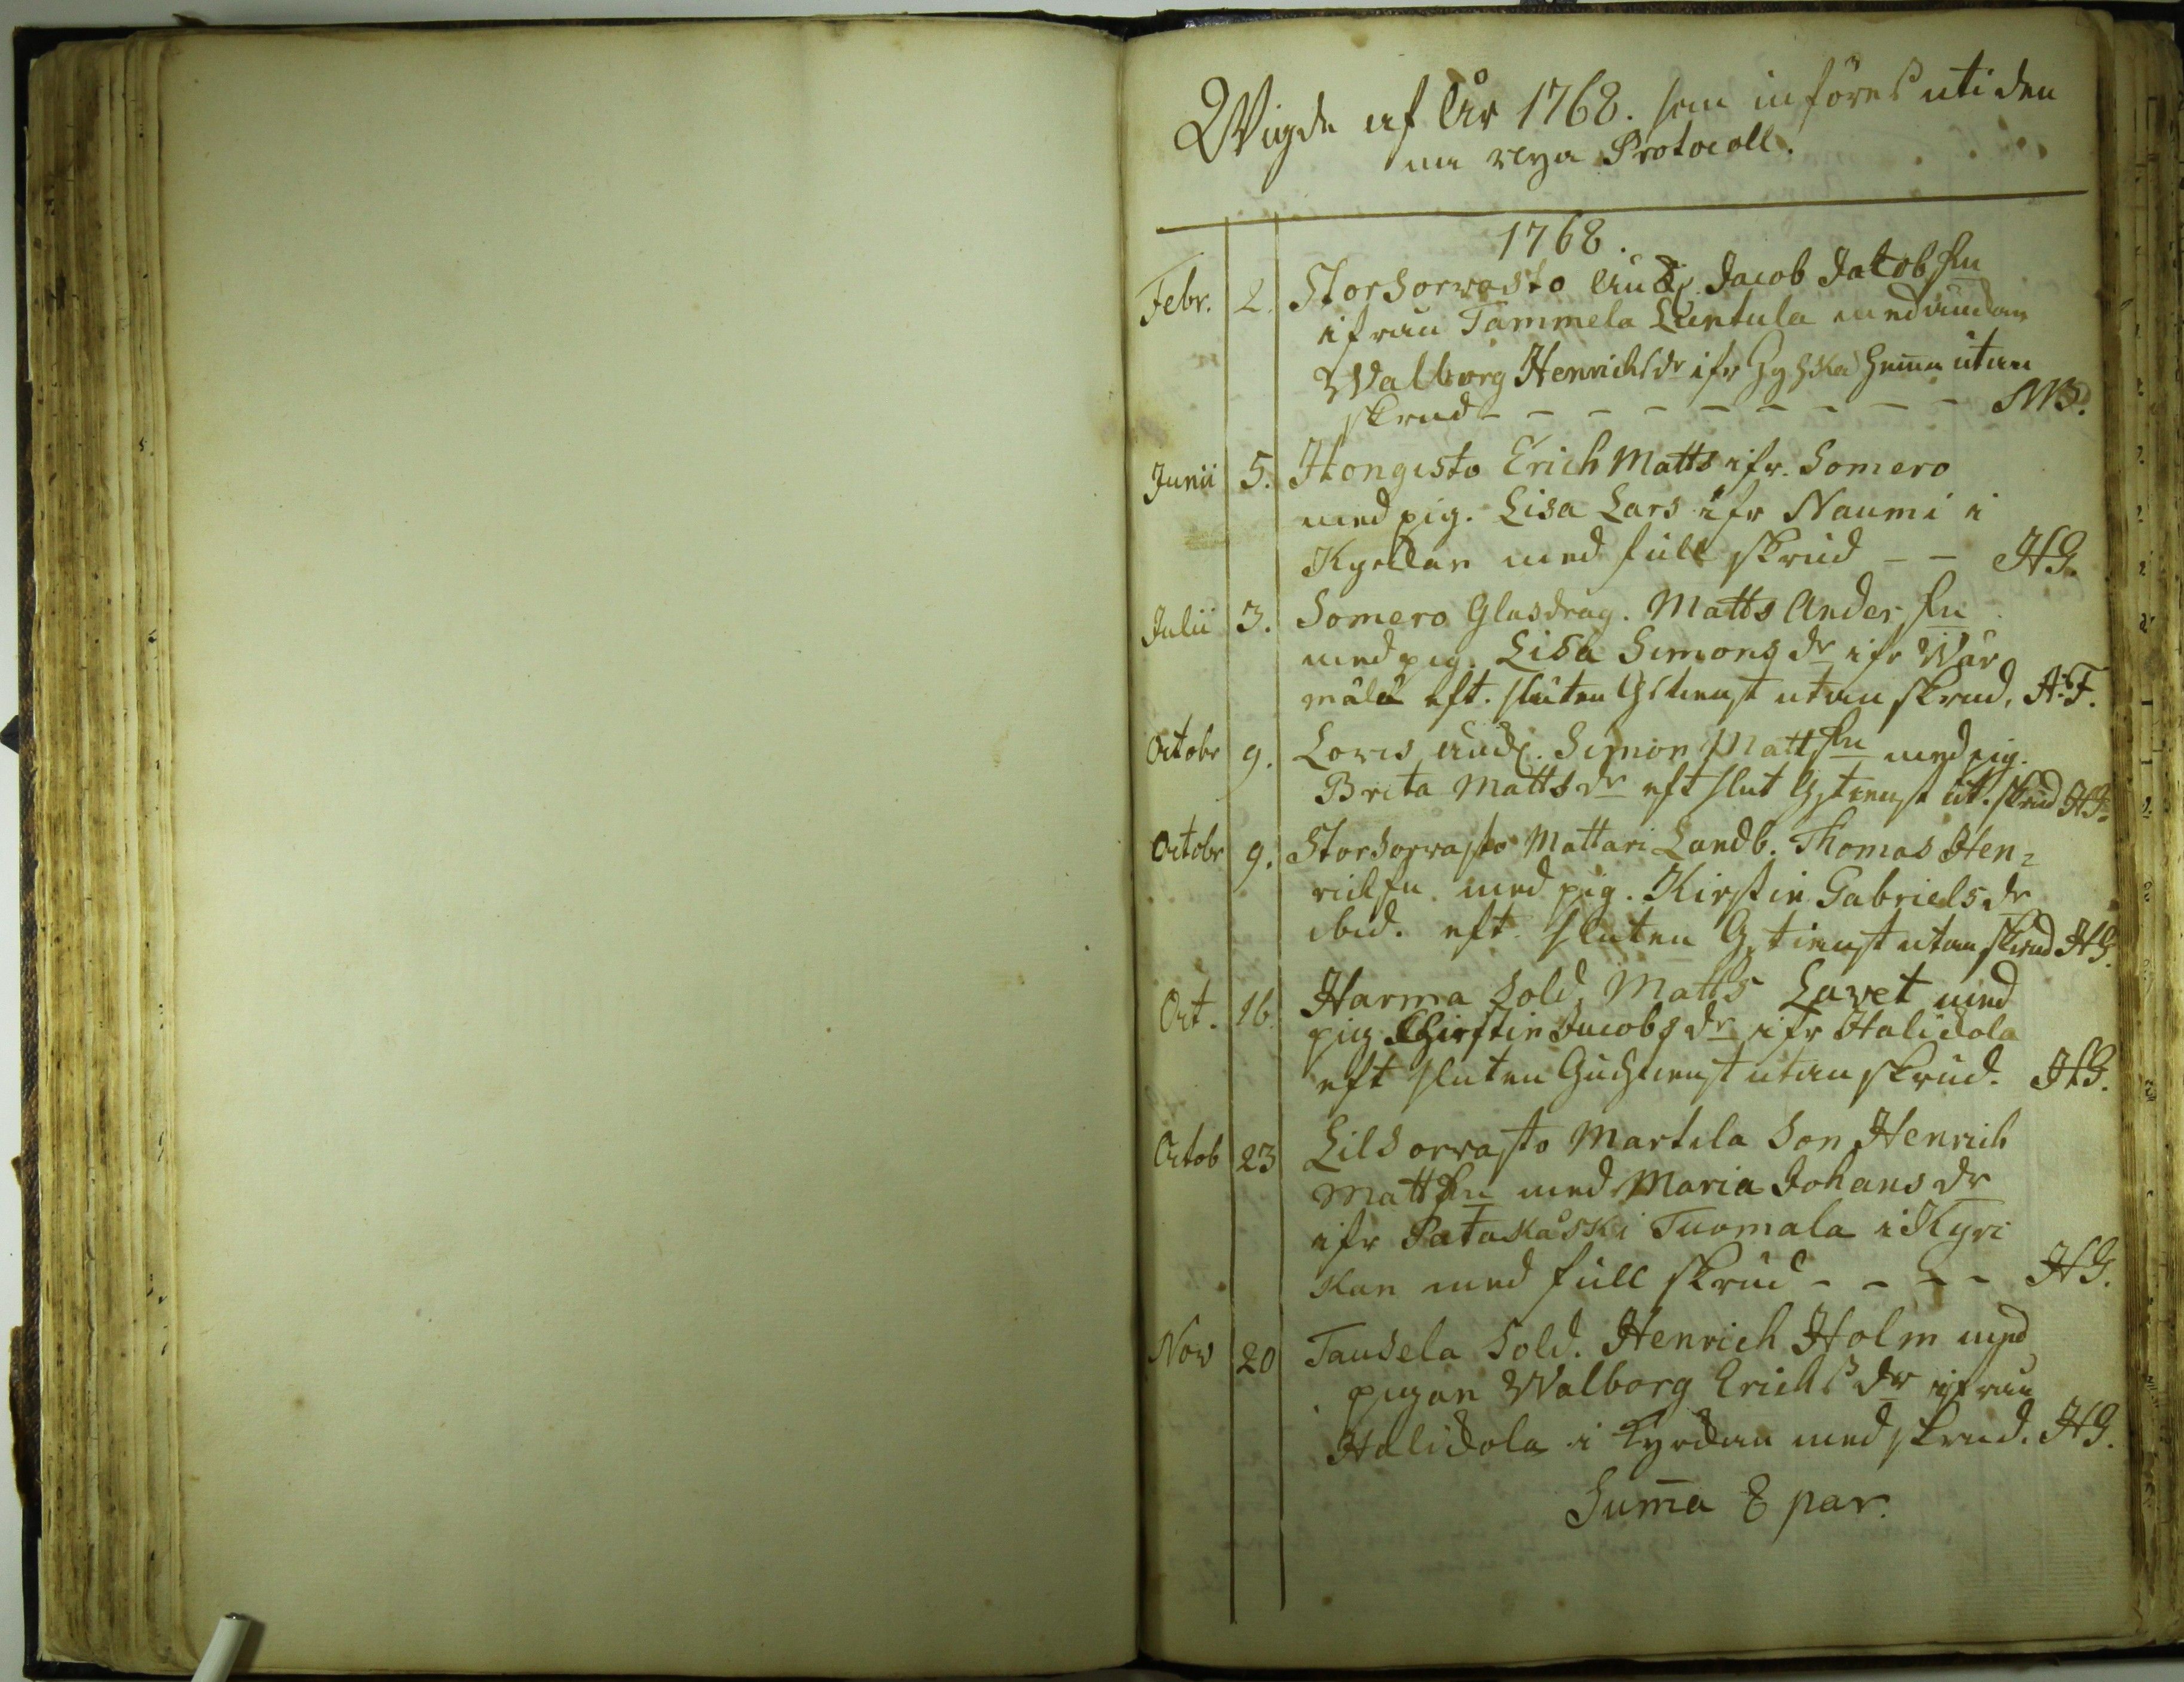 Wigde af År 1768. som införes uti den
na nya Protocoll.
1768.
Febr. 2. StorSorvasto Jacob Jakobsn
ifrån Tammela Luntula med
Walborg Henrichsdr ifr utan
skrud - - - - - - - - -
Junii 5. Hongisto Erich Matts ifr. Somero
med pig. Lisa Lars ifr Naumi i
Kyrckan med full skrud - - HG.
Julii 3. Somero Glasdrag. Matts Andersn
med pig. Lisa Simons dr ifr Wär
mälä eft. sluten Gtienst utan skrud. H.F.
Octobr 9. Simon Mattsn med pig.
Brita Matts dr eft slut Gtienst ut. skrud HG.
Octobr 9. StorSorvasto Mattari Landb. Thomas Hen=
richsn. med pig. Kirstin Gabriels dr
ibid. eft. sluten Gtienst utan skrud HG.
Oct. 16. Harma Sold. Matts Lavet med
pig Chirstin Jacobs dr ifr Halickola
eft sluten Gudstienst utan skrud. HG.
Octob 23 LilSorvasto Martila Son Henrich
Mattsn med Maria Johans dr
ifr Patakåski Tuomala i Kyr
kan med full skrud - - - - HG.
Nov 20 Tausela Sold. Henrich Holm med
pigan Walborg Erichs dr ifrån
Halickola i Kyrckan med skrud. HG.
Suma 8 par.